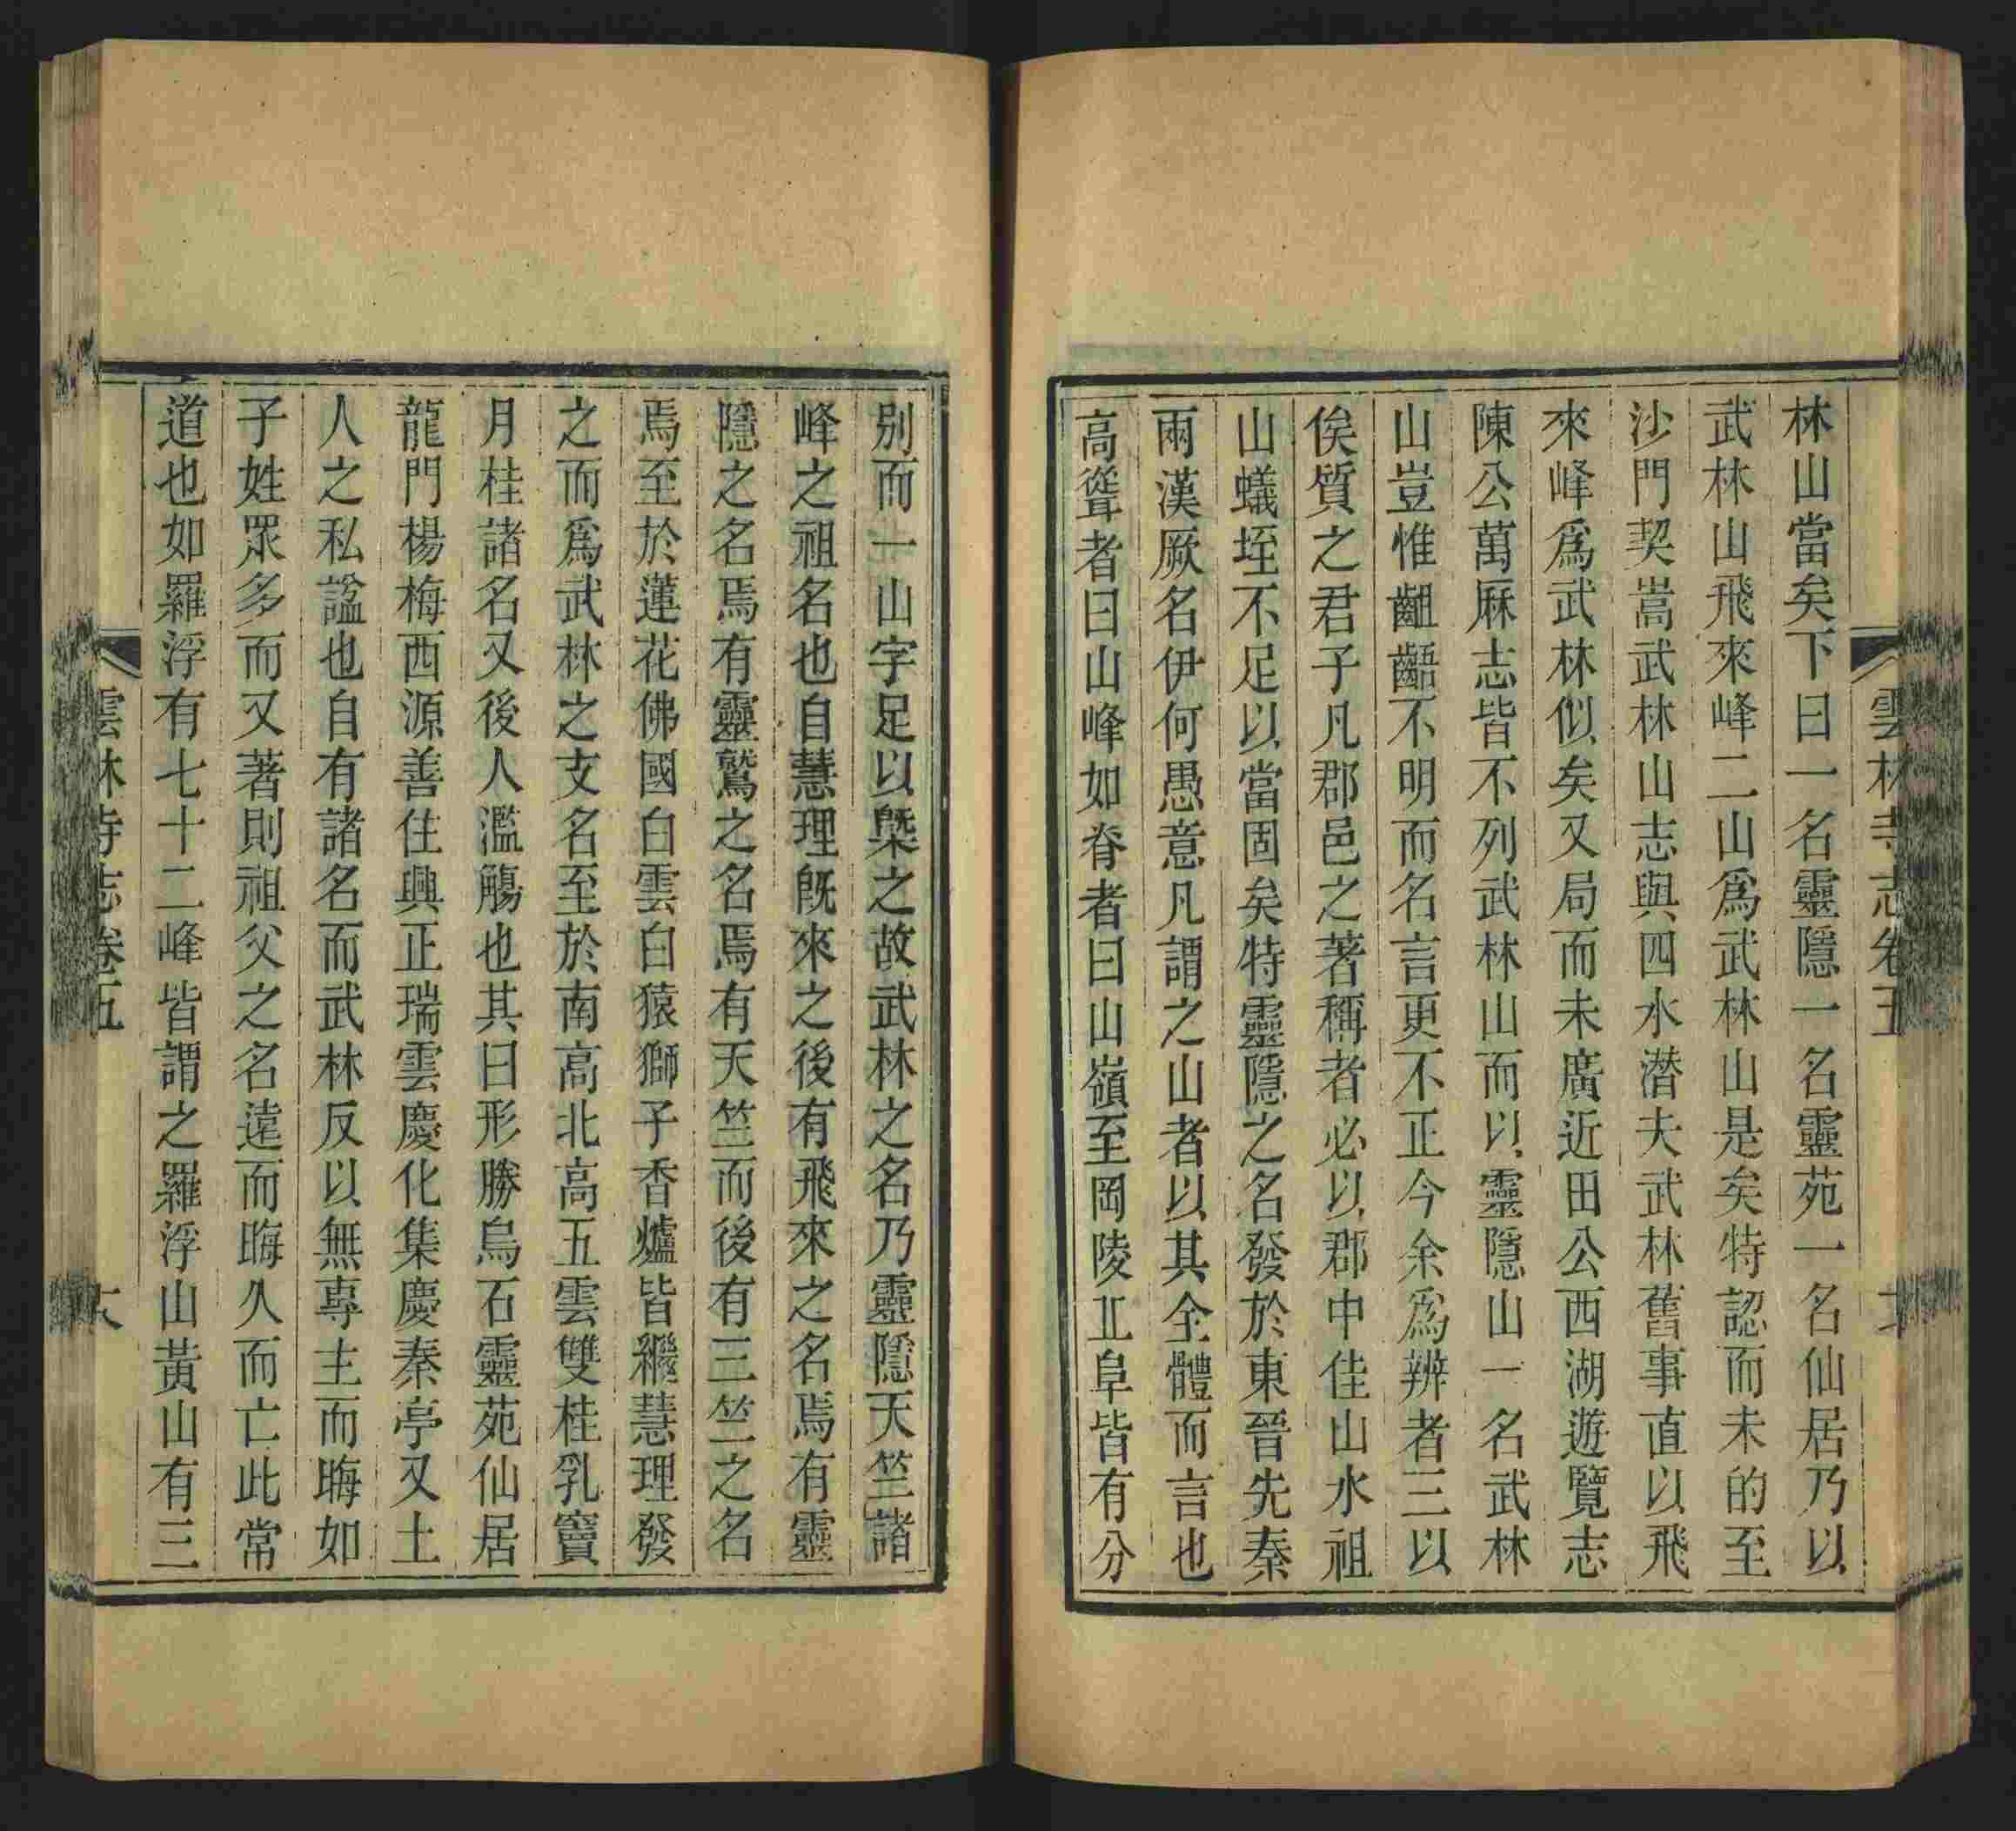 雲林寺志卷五
林山當矣下曰一名靈隱一名靈苑一名仙居乃以
武林山飛來峰二山爲武林山是矣特認而未的至
沙門契嵩武林山志與四水潛夫武林舊事直以飛
來峰爲武林似矣又局而未廣近田公西湖遊覽志
陳公萬厤志皆不列武林山而以靈隱山一名武林
山豈惟齟齬不明而名言更不正今余爲辨者三以
俟質之君子凡郡邑之著稱者必以郡中佳山水祖
山蟻垤不足以當固矣特靈隱之名發於東晉先秦
兩漢厥名伊何愚意凡謂之山者以其全體而言也
高聳者曰山峰如脊者曰山嶺至岡陵丘阜皆有分
别而一山字足以槩之故武林之名乃靈隱天竺諸
峰之祖名也自慧理旣來之後有飛來之名焉有靈
隱之名焉有靈鷲之名焉有天竺而後有三竺之名
焉至於蓮花佛國白雲白猿獅子香爐皆繼慧理發
之而爲武林之支名至於南高北高五雲雙桂乳竇
月桂諸名又後人濫觴也其曰形勝烏石靈苑仙居
龍門楊梅西源善住興正瑞雲慶化集慶秦亭又土
人之私諡也自有諸名而武林反以無專主而晦如
子姓眾多而又著則祖父之名遠而晦久而亡此常
道也如羅浮有七十二峰皆謂之羅浮山黃山有三
雲林寺志卷五